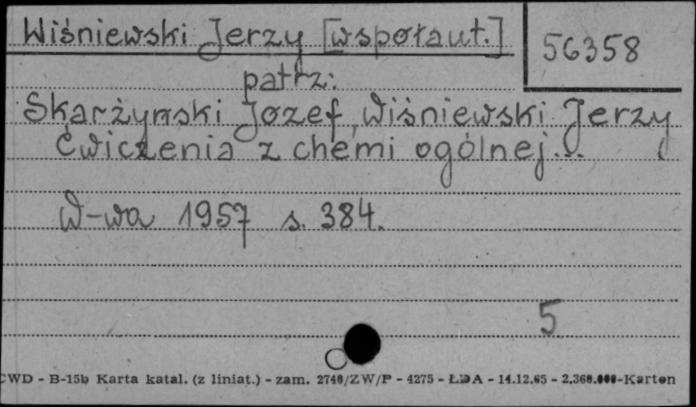 Wiśniewski Jerzy [wspołaut.]
56358
patrz:
Skarżynski Józef, Wiśniewski Jerzy
Ćwiczenia z chemi ogólnej...
W-wa 1957 s. 384.
5
CWD - B-15b Karta katal. (z liniat.) - zam. 2746/ZW/P - 4275 - ŁDA - 14.12.65 - 2.360.000-Karton